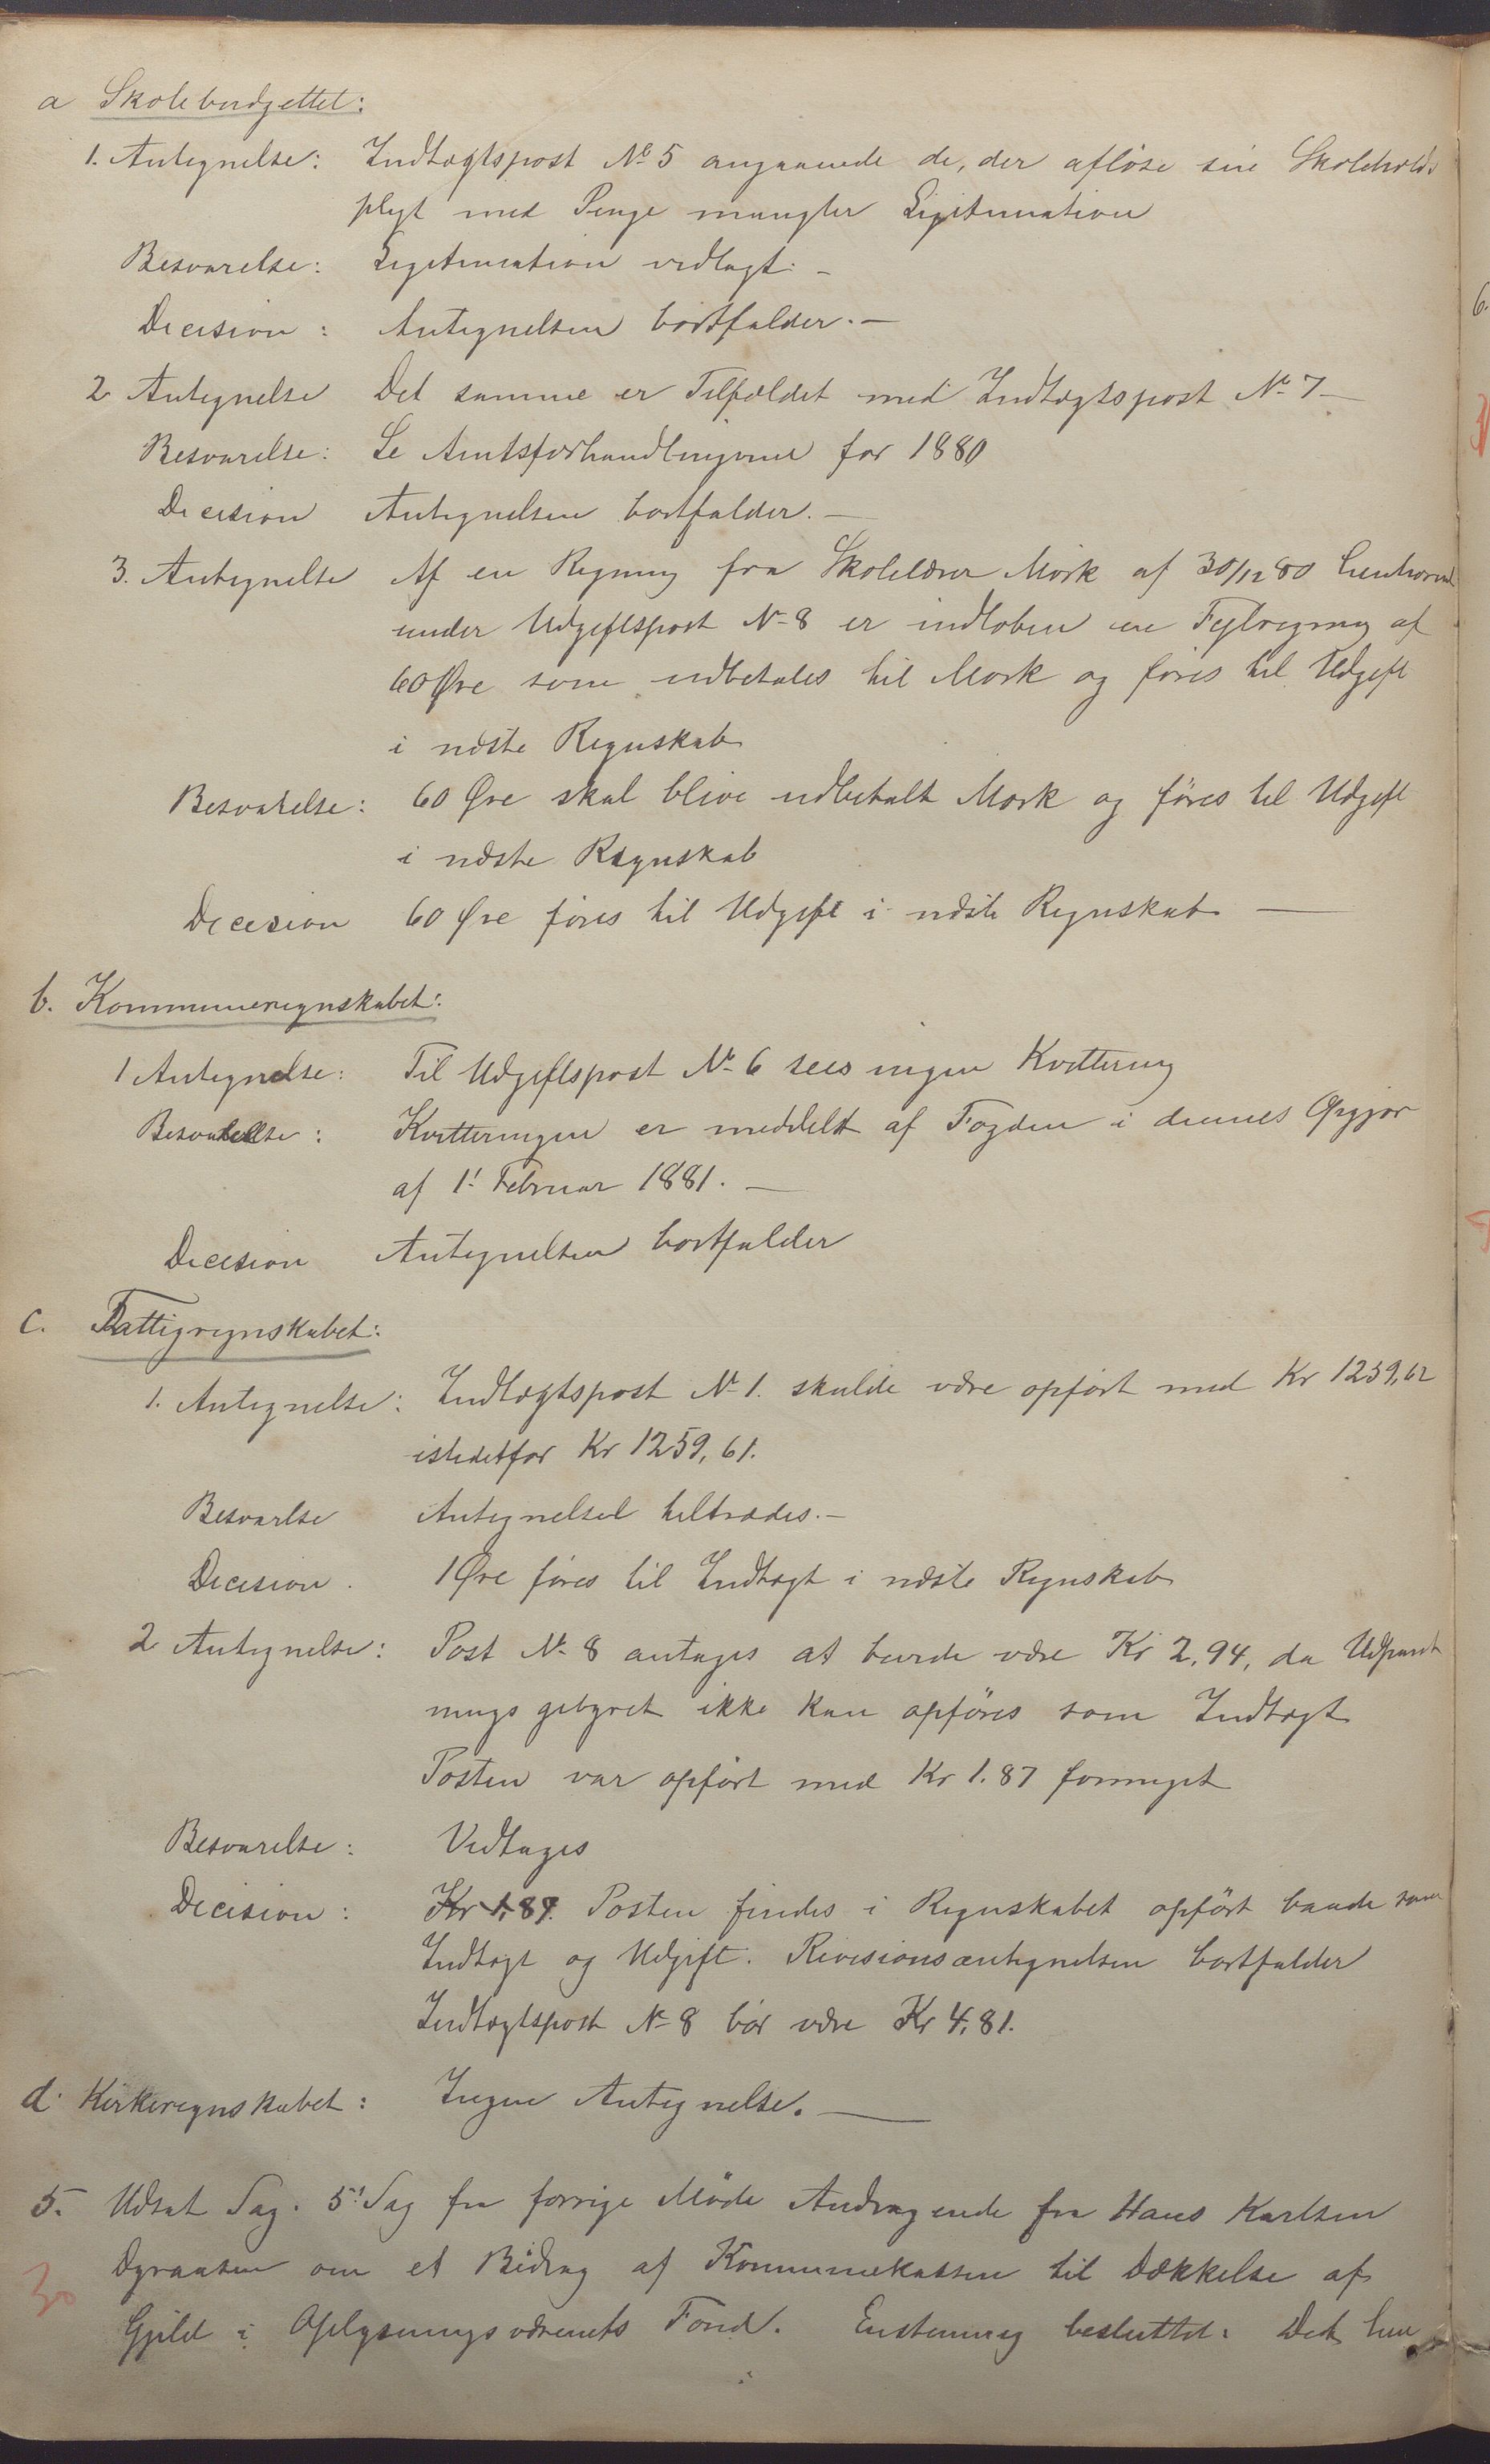 a Skolebudgettet:
1. Antegnelse: Indtægtspost No 5 angaaende de, der afløse sin Skoleholds
pligt med Penge mangler Legitimation
Besvarelse: Legitimation vedlagt. –
Decision: Antegnelsen bortfalder. –
2 Antegnelse Det samme er Tilfældet med Indtægtspost No 7 –
Besvarelse: Se Amtsforhandlingerne for 1880
Decision Antegnelsen bortfalder. –
3. Antegnelse Af en Regning fra Skolelærer Mork af 30/12 80 henhørend
under Udgiftspost No 8 er indløben en Fejlregning af
60 Øre som udbetales til Mork og føres til Udgift
i næste Regnskab
Besvarelse: 60 Øre skal blive udbetalt Mork og føres til Udgift
i næste Regnskab
Decision 60 Øre føres til Udgift i næste Regnskab –
b. Kommuneregnskabet:
1 Antegnelse: Til Udgiftspost No 6 sees ingen Kvittering
Besvarelse: Kvitteringen er meddelt af Fogden i dennes Opgjør
af 1! Februar 1881. –
Decision Antegnelsen bortfalder
C. Fattigregnskabet:
1. Antegnelse: Indtægtspost No 1. skulde være opført med Kr 1259,62
istedetfor Kr 1259,61.
Besvarlse Antegnelsel tiltrædes. –
Decision. 1 Øre føres til Indtægt i næste Regnskab
2 Antegnelse: Post No 8 antages at burde være Kr 2,94, da Udpant
nings gebyret ikke kan opføres som Indtægt
Posten var opført med Kr 1.87 formeget
Besvarelse: Vedtages
Decision: Kr 1,87. Posten findes i Regnskabet opført baade som
Indtægt og Udgift. Revisionsantegnelsen bortfalder
Indtægtspost No 8 bør være Kr 4,81.
d. Kirkeregnskabet: Ingen Antegnelse. –
5. Udsat Sag. 5! Sag fra forrige Møde Andragende fra Hans Karlsen
om et Bidrag af Kommunekassen til Dækkelse af
Gjeld i Oplysningsvæsenets Fond. Enstemmig besluttet: Det hen
30